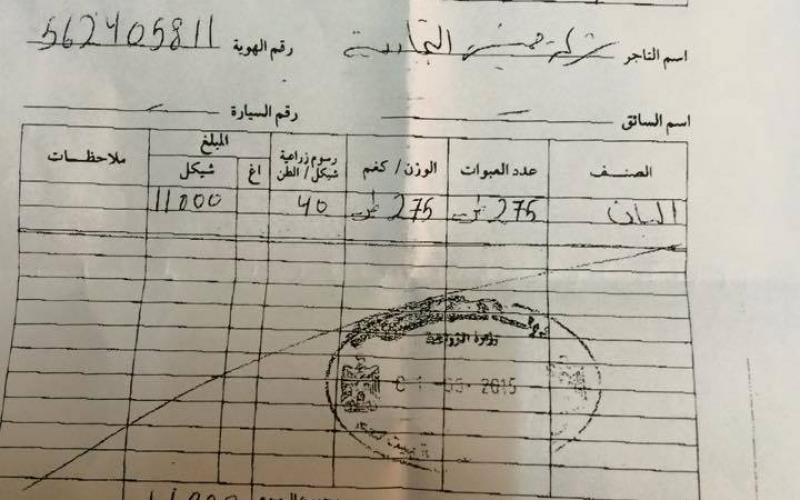 اسم التاجر شركة التجارية رقم الهوية 562405811
اسم السائق رقم السيارة
الصنف عدد العبوات الوزن / كغم رسوم زراعية شيكل / الطن المبلغ اغ شيكل ملاحظات
البان 275 طن 275 طن 40 11000
وزارة الزراعة
2015